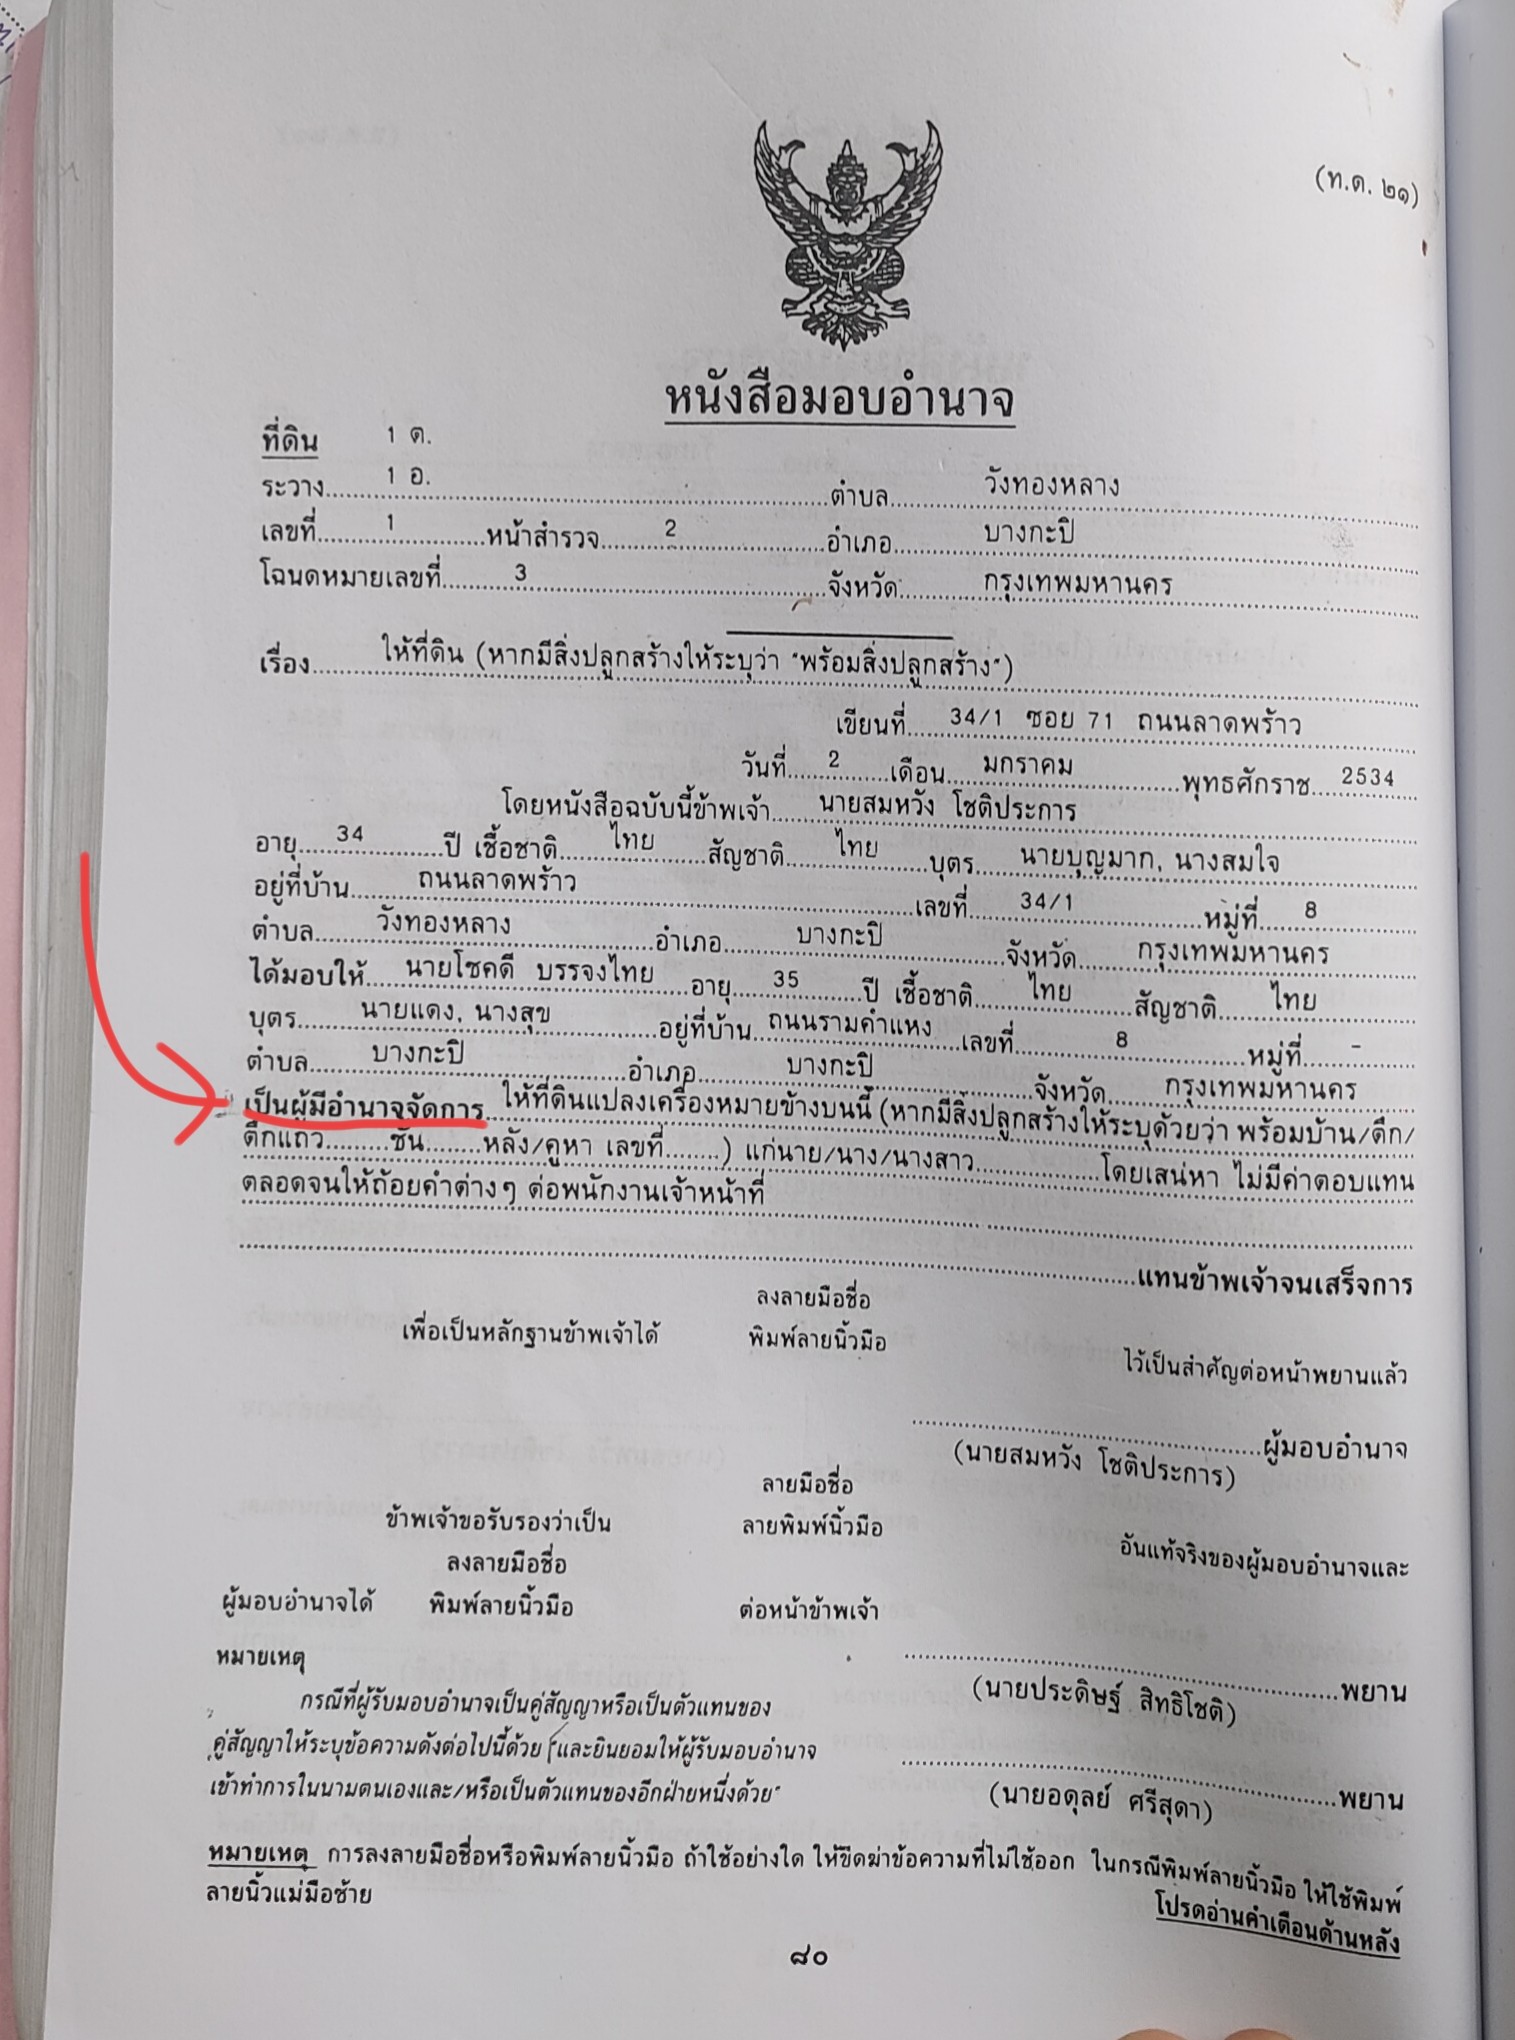 (ท.ด. ๒๑)
หนังสือมอบอำนาจ
ที่ดิน 1 ต.
ระวาง 1 อ. ตำบล วังทองหลาง
เลขที่ 1 หน้าสำรวจ 2 อำเภอ บางกะปิ
โฉนดหมายเลขที่ 3 จังหวัด กรุงเทพมหานคร
เรื่อง ให้ที่ดิน (หากมีสิ่งปลูกสร้างให้ระบุว่า "พร้อมสิ่งปลูกสร้าง")
เขียนที่ 34/1 ซอย 71 ถนนลาดพร้าว
วันที่ 2 เดือน มกราคม พุทธศักราช 2534
โดยหนังสือฉบับนี้ข้าพเจ้า นายสมหวัง โชติประการ
อายุ 34 ปี เชื้อชาติ ไทย สัญชาติ ไทย บุตร นายบุญมาก, นางสมใจ
อยู่ที่บ้าน ถนนลาดพร้าว เลขที่ 34/1 หมู่ที่ 8
ตำบล วังทองหลาง อำเภอ บางกะปิ จังหวัด กรุงเทพมหานคร
ได้มอบให้ นายโชคดี บรรจงไทย อายุ 35 ปี เชื้อชาติ ไทย สัญชาติ ไทย
บุตร นายแดง, นางสุข อยู่ที่บ้าน ถนนรามคำแหง เลขที่ 8 หมู่ที่ -
ตำบล บางกะปิ อำเภอ บางกะปิ จังหวัด กรุงเทพมหานคร
เป็นผู้มีอำนาจจัดการ ให้ที่ดินแปลงเครื่องหมายข้างบนนี้ (หากมีสิ่งปลูกสร้างให้ระบุด้วยว่า พร้อมบ้าน/ตึก/
ตึกแถว........ชั้น........หลัง/คูหา เลขที่........) แก่นาย/นาง/นางสาว................โดยเสน่หา ไม่มีค่าตอบแทน
ตลอดจนให้ถ้อยคำต่างๆ ต่อพนักงานเจ้าหน้าที่
แทนข้าพเจ้าจนเสร็จการ
ลงลายมือชื่อ
เพื่อเป็นหลักฐานข้าพเจ้าได้ พิมพ์ลายนิ้วมือ ไว้เป็นสำคัญต่อหน้าพยานแล้ว
ผู้มอบอำนาจ
(นายสมหวัง โชติประการ)
ลายมือชื่อ
ข้าพเจ้าขอรับรองว่าเป็น ลายพิมพ์นิ้วมือ อันแท้จริงของผู้มอบอำนาจและ
ลงลายมือชื่อ
ผู้มอบอำนาจได้ พิมพ์ลายนิ้วมือ ต่อหน้าข้าพเจ้า
หมายเหตุ
พยาน
(นายประดิษฐ์ สิทธิโชติ)
กรณีที่ผู้รับมอบอำนาจเป็นคู่สัญญาหรือเป็นตัวแทนของ
คู่สัญญาให้ระบุข้อความดังต่อไปนี้ด้วย "และยินยอมให้ผู้รับมอบอำนาจ
เข้าทำการในนามตนเองและ/หรือเป็นตัวแทนของอีกฝ่ายหนึ่งด้วย"
พยาน
(นายอดุลย์ ศรีสุดา)
หมายเหตุ การลงลายมือชื่อหรือพิมพ์ลายนิ้วมือ ถ้าใช้อย่างใด ให้ขีดฆ่าข้อความที่ไม่ใช้ออก ในกรณีพิมพ์ลายนิ้วมือ ให้ใช้พิมพ์
ลายนิ้วแม่มือซ้าย
โปรดอ่านคำเตือนด้านหลัง
๘๐